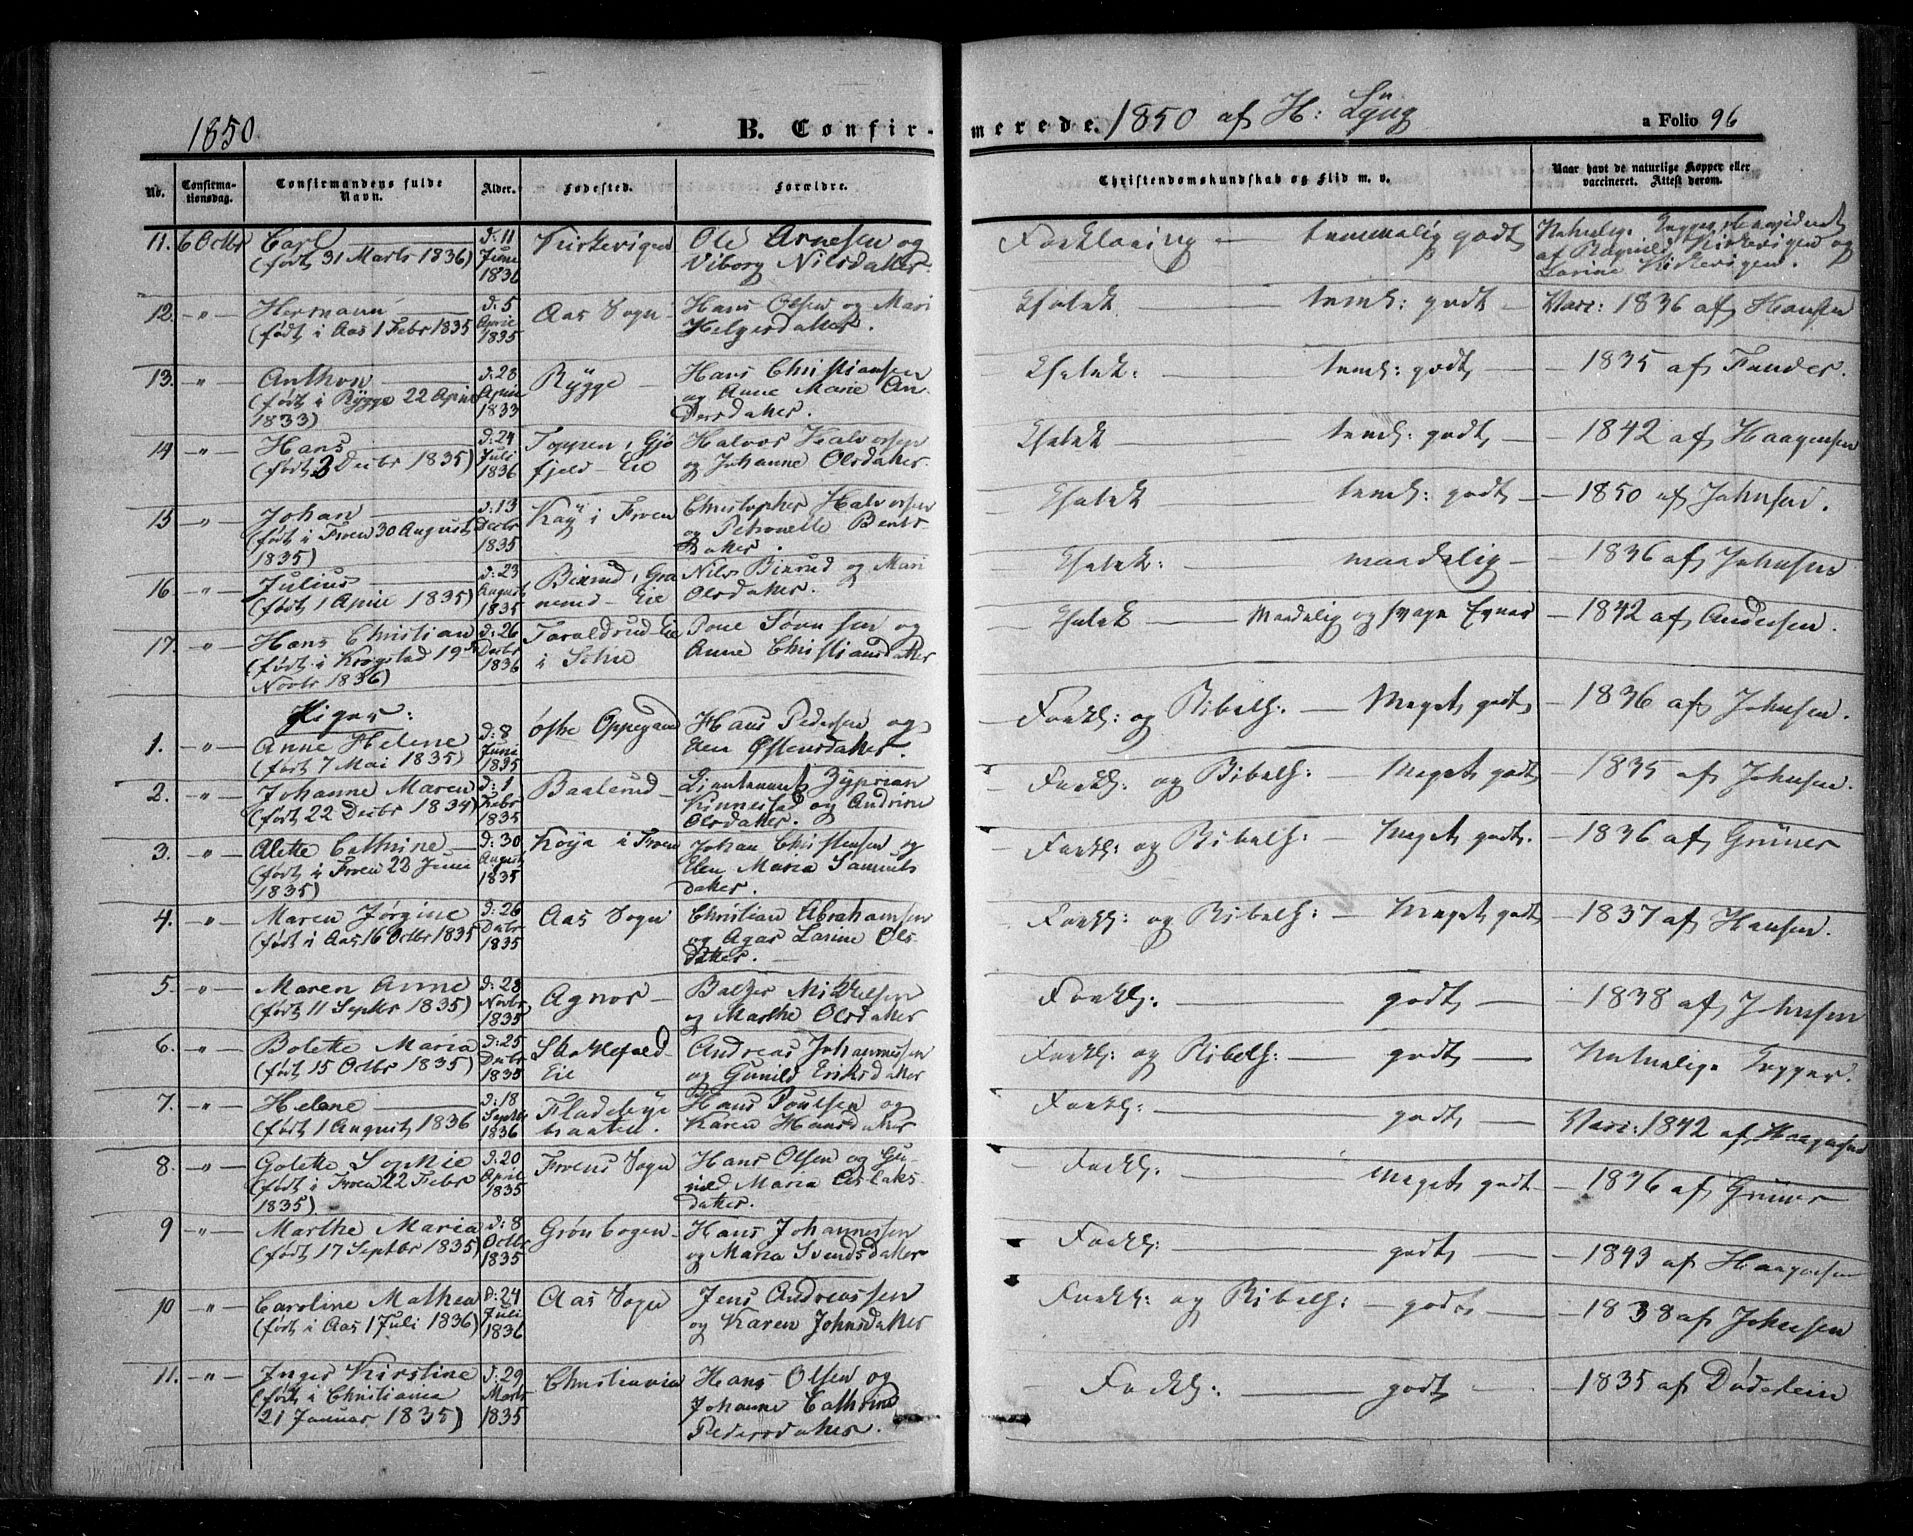 1850.
B. Confirmerede. 1850 af H: Lÿng
a Folio 96
No.
Confirmationsdag.
Confirmandens fulde Navn.
Alder.
Fødested.
Forældre.
Christendomskundskab og Flid m. v.
Naar havt de naturlige Kopper eller vaccineret. Attest derom.
11. 6 Octbr Carl
(født 31 Marts 1836)
d: 11 Juni 1836
Ole Arnesen og
Viborg Nilsdatter.
Forklaring — temmelig godt
12. -"- Hermann
(født i Aas 1 Febr 1835
d: 5 April 1835
Aas Sogn
Hans Olsen og Mari
Helgesdatter.
temel: godt — Vacc: 1836 af Hansen
13. -"- Anthon
(født i Rÿgge 22 April
1833)
d: 28 April 1833
Rÿgge
Hans Christiansen
og Anne Marie An-
dersdatter.
teml: godt — 1835 af
14 -"- Hans
(født 3 Decbr 1835)
d: 24 Juli 1836
Toppen, Gjø
fjeld - Eie
Halvor Halvorsen
og Johanne Olsdatter.
teml: godt — 1842 af Haagensen
15 -"- Johan
(født i Froen 30 August
1835)
d: 13 Decbr 1835
i Froen
Christopher Halvorsen
og Petronelle Bents-
datter.
teml: godt — 1850 af Johnsen.
16 -"- Julius
(født 1 April 1835)
d: 23 August 1835
Nils og Mari
Olsdatter.
maadelig — 1836 af Johnsen
17. -"- Hans Christian
(født i Krogstad 19de
Novbr 1836)
d: 26 Decbr 1836
Taraldrud Eie
i Schie
og
Anne Christiansdatter
Maadelig og svage Evner — 1842 af Andersen.
Piger:
1. -"- Anne Helene
(født 7 Mai 1835)
d: 8 Juni 1835
østre Oppegaard
Hans Pedersen og
Elen Østensdatter.
Forkl: og Bibelh: — Meget godt — 1836 af Johnsen.
2. -"- Johanne Maren
(født 22 Decbr 1834)
d: 1 Febr 1835
Baalerud
Lieutenant Zyprian
Kinnestad og Andrine
Olsdatter.
Forkl: og Bibelh: Meget godt — 1835 af Johnsen.
3. -"- Alette Cathrine
(født i Froen 23 Juni
1835)
d: 30 August 1835
Køya i Froen
Johan Christensen og
Elen Maria Samuels
datter.
Forkl: og Bibelh: — Meget godt. — 1836 af Grüner
4. -"- Maren Jørgine
(født i Aas 16 Octbr 1835
d: 26 Decbr 1835
Aas Sogn
Christian Abrahamsen
og Agar Larine Ols-
datter.
Forkl: og Bibelh: — Meget godt — 1837 af Hansen.
5. -"- Maren Anne
(født 11 Septbr 1835)
d: 28 Novbr 1835
Agnor
Baltzer Mikkelsen
og Marthe Olsdatter
Forkl: — godt — 1838 af Johnsen
6. -"- Bolette Maria
(født 15 Octbr 1835)
d: 25 Decbr 1835
Eie
Andreas Johannessen
og Gunild Eriksdatter
Forkl: og Bibelh: — godt — Naturlige Kopper.
7. -"- Helene
(født 1 August 1836
d: 18 Septbr 1836
Fladebye
braaten.
Hans Poulsen og
Karen Hansdatter
Forkl: — godt — Vacc: 1842 af Haagensen
8. -"- Golette Sophie
(født i Froen 22 Febr
1835)
d: 20 April 1835
Froens Sogn
Hans Olsen og Gu-
nild Maria Aslaks
datter.
Forkl: — Meget godt — 1836 af Grüner
9 -"- Marthe Maria
(født 17 Septbr 1835)
d: 8 Octbr 1835
Grønbogen
Hans Johannessen
og Maria Svendsdatter
Forkl: — godt — 1843 af Haagensen
10 -"- Caroline Mathea
(født i Aas 1 Juli 1836)
d: 24 Juli 1836
Aas Sogn
Jens Andreassen
og Karen Johnsdatter
Forkl: og Bibelh: — godt — 1838 af Johnsen
11. -"- Inger Kirstine
(født i Christiania
21 Januar 1835)
d: 29 Marts 1835
Christiania
Hans Olsen og
Johanne Cathrine
Pedersdatter.
Forkl: — godt — 1835 af Døderlein